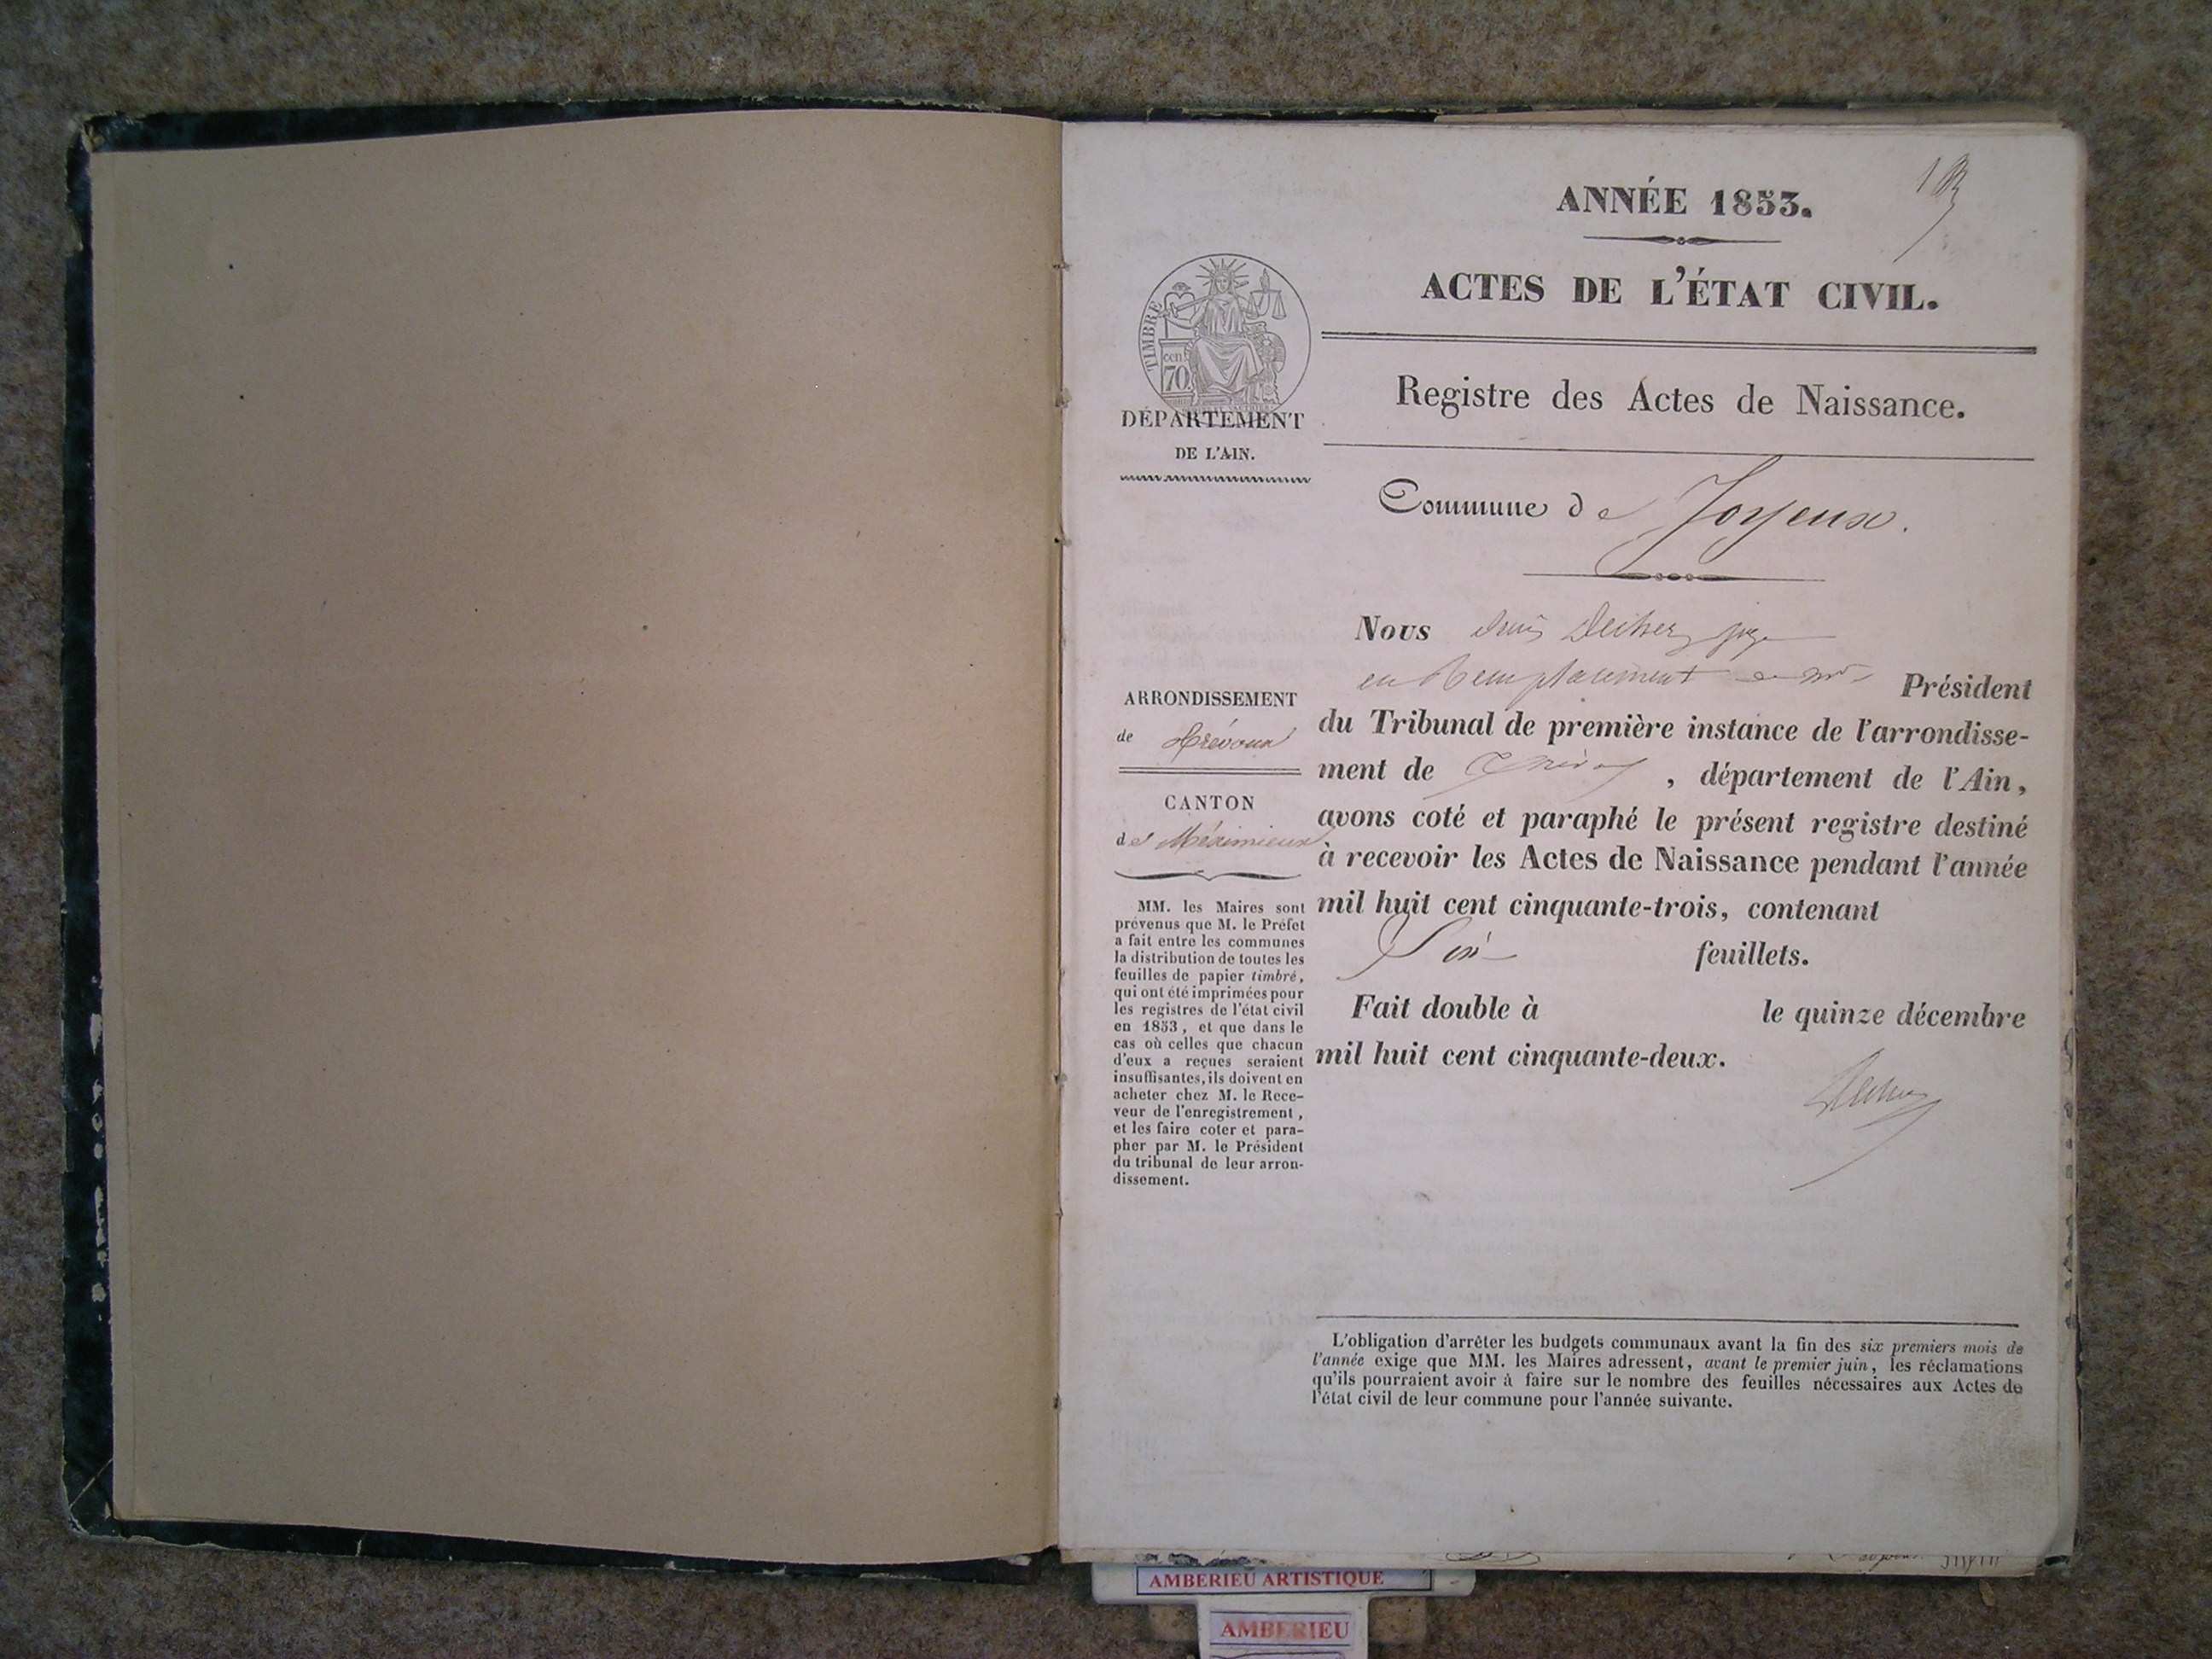 ANNÉE 1853.
ACTES DE L'ÉTAT CIVIL.
TIMBRE
cen.
70
DÉPARTEMENT
DE L'AIN.
Registre des Actes de Naissance.
Commune de Joyeux.
ARRONDISSEMENT
de Trévoux
CANTON
de Méximieux
MM. les Maires sont
prévenus que M. le Préfet
a fait entre les communes
la distribution de toutes les
feuilles de papier timbré,
qui ont été imprimées pour
les registres de l'état civil
en 1853, et que dans le
cas où celles que chacun
d'eux a reçues seraient
insuffisantes, ils doivent en
acheter chez M. le Rece-
veur de l'enregistrement,
et les faire coter et para-
pher par M. le Président
du tribunal de leur arron-
dissement.
Nous juge
en Remplacement de Mr Président
du Tribunal de première instance de l'arrondisse-
ment de Trévoux, département de l'Ain,
avons coté et paraphé le présent registre destiné
à recevoir les Actes de Naissance pendant l'année
mil huit cent cinquante-trois, contenant
Six feuillets.
Fait double à le quinze décembre
mil huit cent cinquante-deux.
L'obligation d'arrêter les budgets communaux avant la fin des six premiers mois de
l'année exige que MM. les Maires adressent, avant le premier juin, les réclamations
qu'ils pourraient avoir à faire sur le nombre des feuilles nécessaires aux Actes de
l'état civil de leur commune pour l'année suivante.
AMBERIEU ARTISTIQUE
AMBERIEU